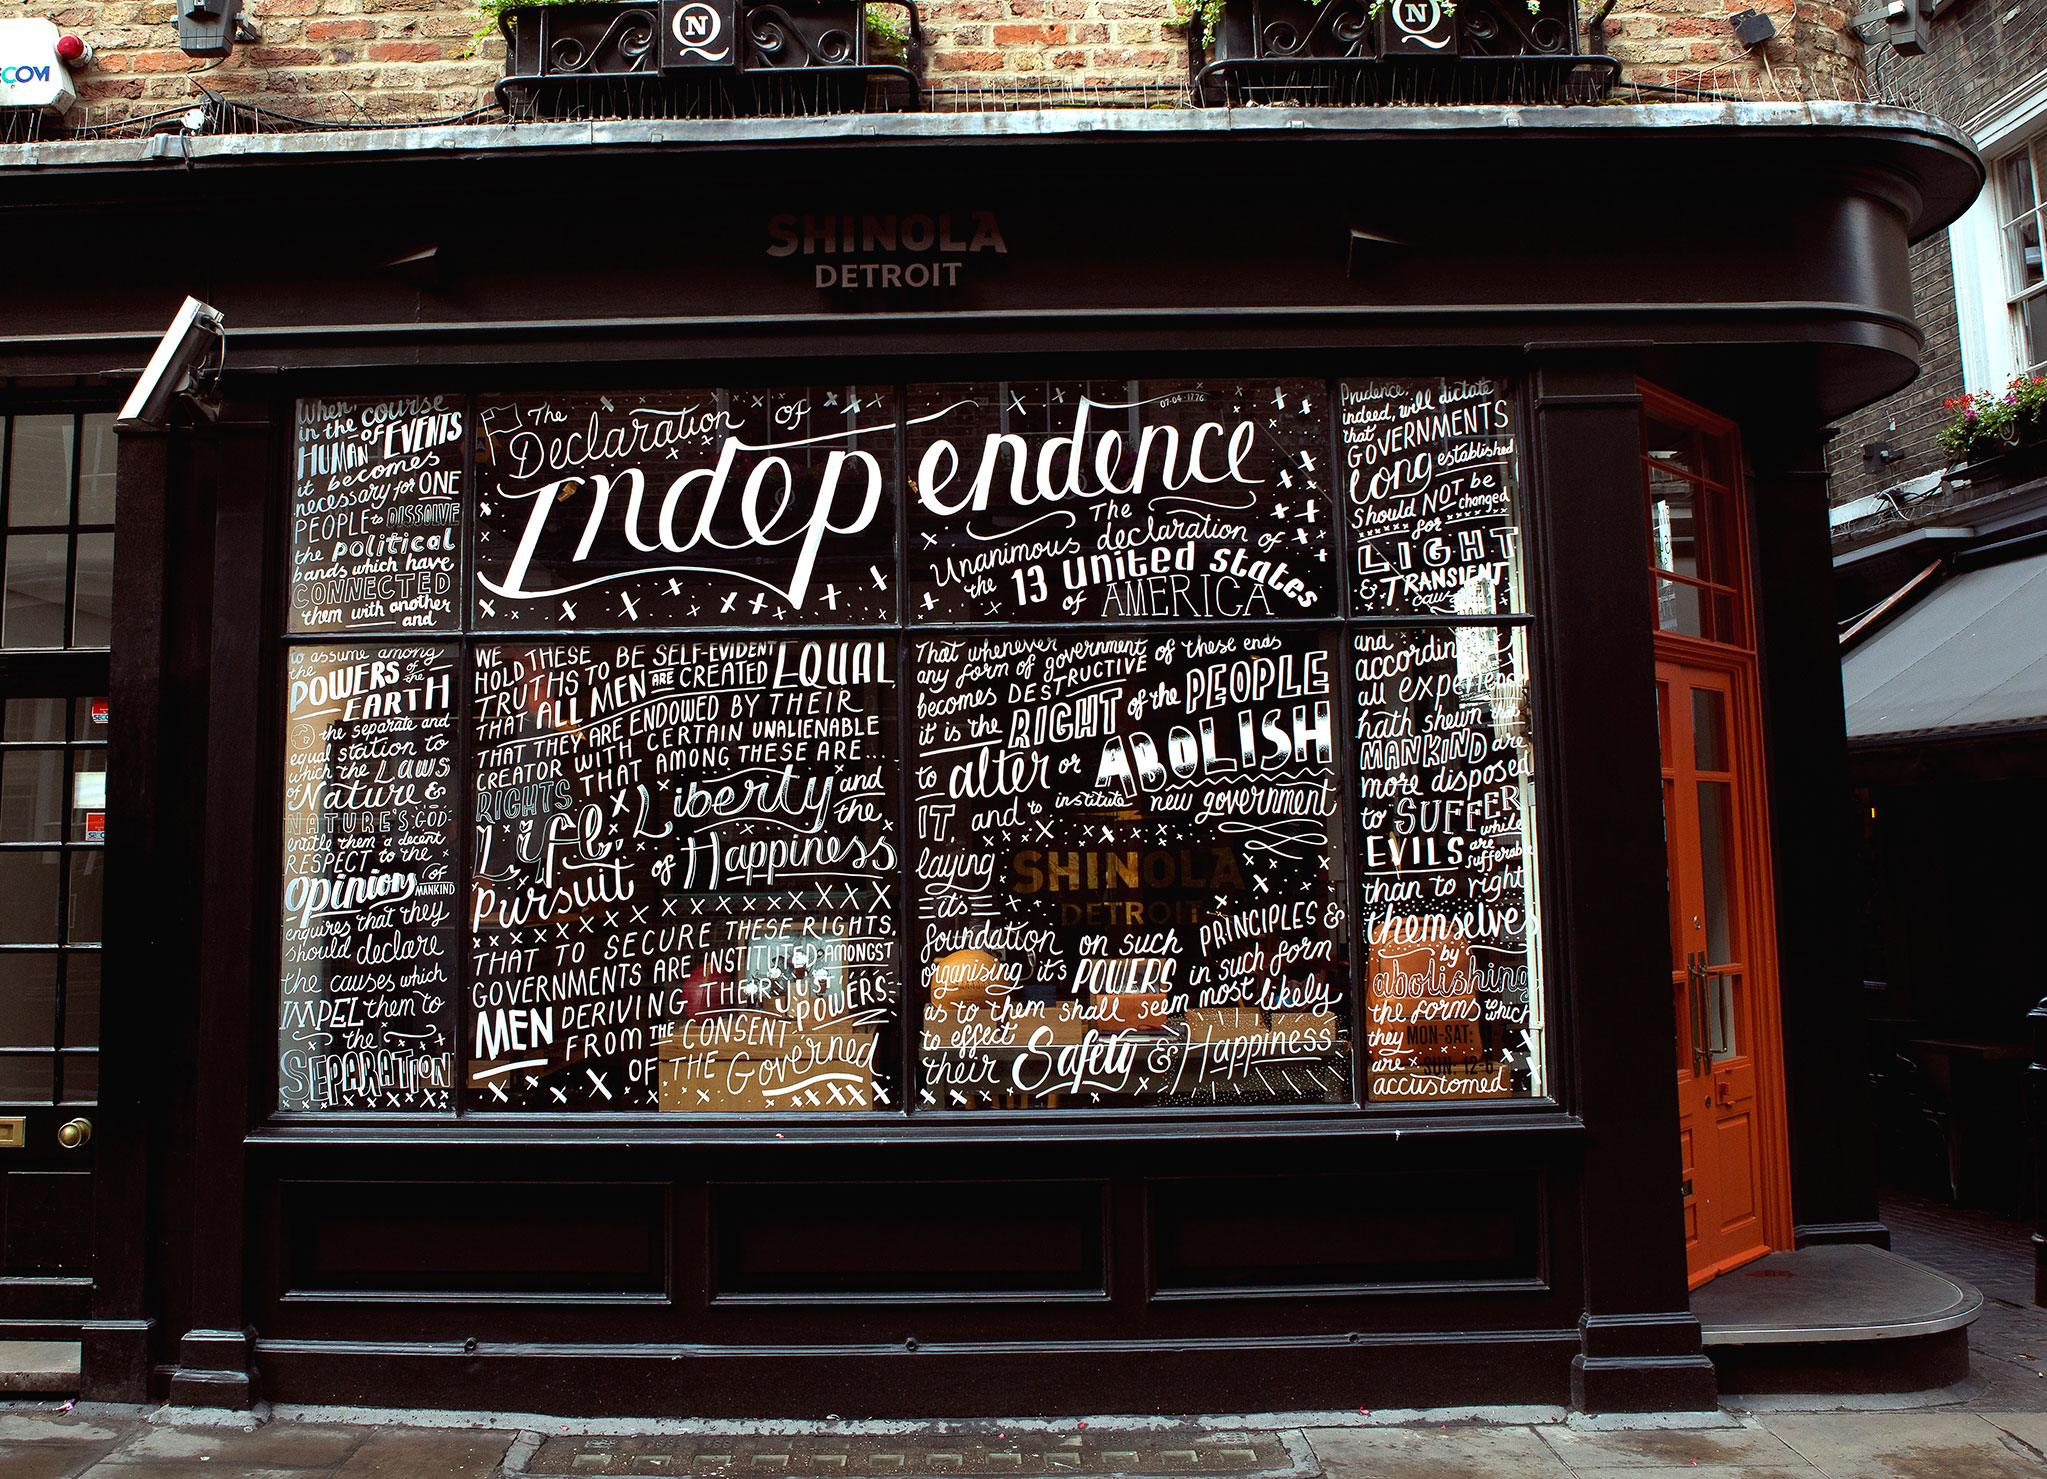 N
Q
N
Q
COM
SHINOLA
DETROIT
When,
in the course
of
HUMAN EVENTS
it becomes
necessary for ONE
PEOPLE to DISSOLVE
the political
bands which have
CONNECTED
them with another
and
to assume among
the
POWERS of the
EARTH
the separate and
equal station to
which the LAWS
of Nature &
NATURE'S GOD
entitle them a decent
RESPECT to the
Opinions of
MANKIND
enquires that they
should declare
the causes which
IMPEL them to
the
SEPARATION
The
Declaration of
Independence
07-04-1776
The
Unanimous declaration of
the 13 united States
of AMERICA
WE HOLD THESE
TRUTHS TO BE SELF-EVIDENT
THAT ALL MEN ARE CREATED EQUAL
THAT THEY ARE ENDOWED BY THEIR
CREATOR WITH CERTAIN UNALIENABLE
RIGHTS THAT AMONG THESE ARE...
Life, Liberty and
the
Pursuit of Happiness
THAT TO SECURE THESE RIGHTS,
GOVERNMENTS ARE INSTITUTED AMONGST
MEN DERIVING THEIR JUST
POWERS
FROM THE CONSENT
OF THE Governed
That whenever
any form of government of these ends
becomes DESTRUCTIVE
it is the RIGHT of the PEOPLE
to alter or ABOLISH
IT and to institute new government
laying
its
foundation on such PRINCIPLES &
organising it's POWERS in such form
as to them shall seem most likely
to effect
their Safety & Happiness
SHINOLA
DETROIT
Prudence,
indeed, will dictate
that GOVERNMENTS
long established
Should NOT be changed
for
LIGHT
& TRANSIENT
and
all experience
hath shewn that
MANKIND are
more disposed
to SUFFER
while
EVILS are
sufferable
than to right
themselves
by
abolishing
the forms to which
they
are
accustomed.
MON-SAT:
SUN: 12-6